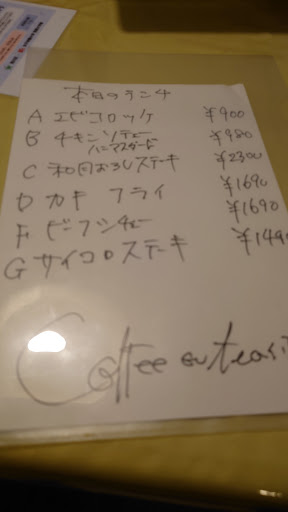 本日のランチ
A エビコロッケ ¥900
B チキンソテー ¥980
ハニーマスタード
C 和風おろしステーキ ¥2300
D カキフライ ¥1690
F ビーフシチュー ¥1690
G サイコロステーキ ¥149
Coffee ou tea